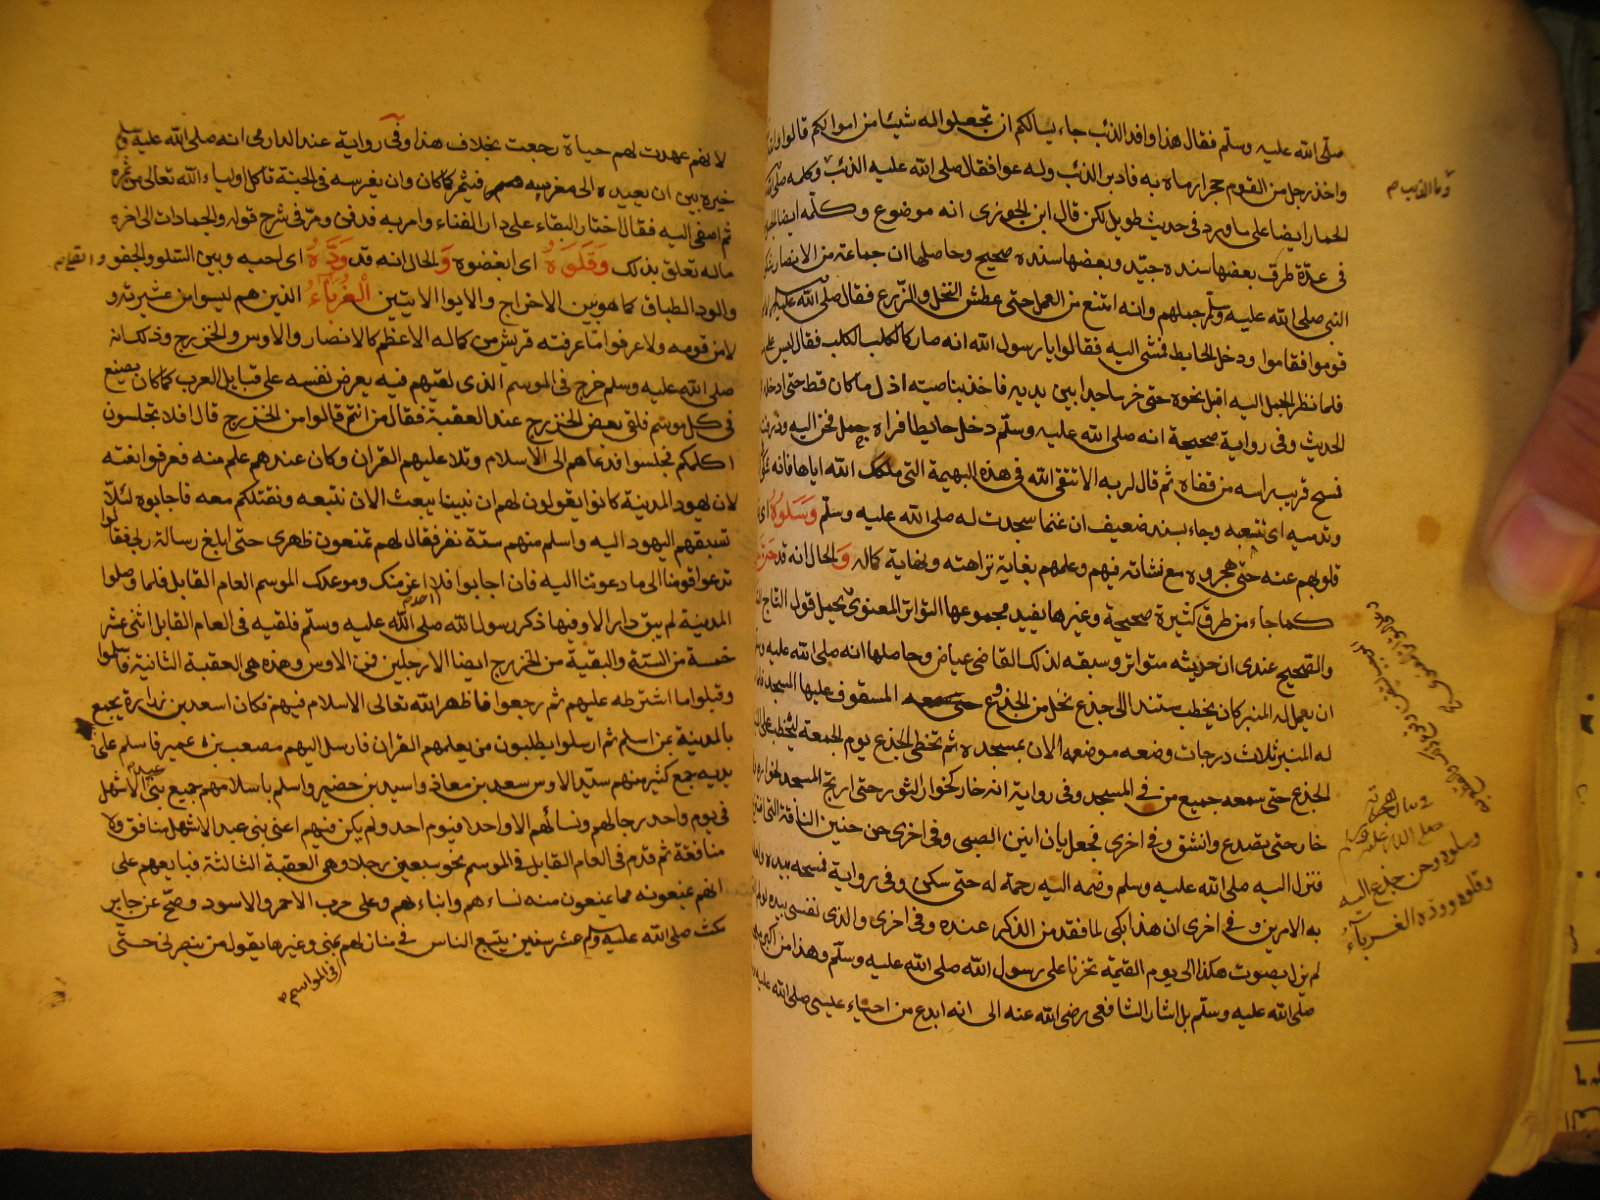 صلى الله عليه وسلم فقال هذا وافد الذئب جاء يسالكم ان تجعلوا له شيئا من اموالكم قالوا والله
واخذ رجل من القوم حجرا رماه به فادبر الذئب وله عوا فقال صلى الله عليه الذئب وكلمه
الحمار ايضا على ما ورد في حديث طويل لكن قال ابن الجوزى انه موضوع وكلمه ايضا
في عدة طرق بعضها سنده جيد وبعضها سنده صحيح وحاصلها ان جماعة من الانصار
النبي صلى الله عليه وسلم جملهم وانه امتنع من العمل حتى عطش النخل والزرع فقال صلى الله عليه وسلم
قوموا فقاموا ودخل الحايط فمشى اليه فقالوا يا رسول الله انه صار كالكلب الكلب فقال ليس علي
فلما نظر الجمل اليه اقبل نحوه حتى خر ساجدا بين يديه فاخذ بناصيته اذل ما كان قط حتى ادخله
الحديث وفي رواية صحيحة انه صلى الله عليه وسلم دخل حايطا فراه جمل فحن اليه وذرفت
فمسح قرب راسه من قفاه ثم قال لربه الا تتقى الله في هذه البهيمة التي ملكك الله اياها فانه
وتدميه اى تتعبه وجاء بسند ضعيف ان غنما سجدت له صلى الله عليه وسلم وسلوه اى
قلوبهم عنه حتى هجروه مع نشاته فيهم وعلمهم بغاية نزاهته ونهاية كماله والحال انه قد حن
كما جاء من طرق كثيرة صحيحة وغيرها يفيد مجموعها التواتر المعنوى بحيل قول التاج
والصحيح عندى ان حديثه متواتر وسبقه لذلك القاضى عياض وحاصلها انه صلى الله عليه وسلم
ان يعمل له المنبر كان يخطب مستندا الى جذع نخل من الجذوع المسقوف عليها المسجد
له المنبر ثلاث درجات وضعه موضعه الان بمسجده ثم تخطى الجذع يوم الجمعة ليخطب على
الجذع حتى سمعه جميع من في المسجد وفي رواية انه خار كخوار الثور حتى ارتج المسجد لخواره
خار حتى تصدع وانشق وفي اخرى فجعل يان انين الصبي وفي اخرى حن حنين الناقة التي
فنزل اليه صلى الله عليه وسلم وضمه اليه رحمة له حتى سكن وفي رواية فمسحه بيده
به الامرين وفي اخرى ان هذا بكى لما فقد من الذكر عنده وفي اخرى والذى نفسى بيده لو لم
لم يزل يصوت هكذا الى يوم القيمة تحزنا على رسول الله صلى الله عليه وسلم وهذا من اكبر
صلى الله عليه وسلم بل اشار الشافعى رضى الله عنه الى انه ابدع من احياء عيسى صلى الله عليه
وسلوه وحن جذع اليه
وقلوه ووده الغرباء
لانهم عهدت لهم حياة رجعت بخلاف هذا وفي رواية عند الدارمى انه صلى الله عليه وسلم
خيره بين ان يعيده الى مغرسه فيثمر كما كان وان يغرسه في الجنة تاكل اولياء الله تعالى من ثمره
ثم اصغى اليه فقال اختار البقاء على دار الفناء وامر به فدفن ومر في شرح قوله والجمادات الى اخره
ماله تعلق بذلك وقلوه اى ابغضوه والحال انه قد وده اى احبه وبين السلو والجفو
والود الطباق كما هو بين الاخراج والايوا الايتين الغرباء الذين هم ليسوا من عشيرته و
لا من قومه ولا عرفوا ما عرفته قريش من كماله الاعظم كالانصار والاوس والخزرج وذلك انه
صلى الله عليه وسلم خرج في الموسم الذى لقيهم فيه يعرض نفسه على قبايل العرب كما كان يصنع
في كل موسم فلقى بعض الخزرج عند العقبة فقال من انتم قالوا من الخزرج قال افلا تجلسون
اكلمكم فجلسوا فدعاهم الى الاسلام وتلا عليهم القران وكان عندهم علم منه فعرفوا نعته
لان يهود المدينة كانوا يقولون لهم ان نبينا يبعث الان نتبعه ونقتلكم معه فاجابوه لئلا
تسبقهم اليهود اليه واسلم منهم ستة نفر فقال لهم تمنعون ظهرى حتى ابلغ رسالة ربى فقالوا
ندعوا قومنا الى ما دعوتنا اليه فان اجابوا فلا احد اعز منك وموعدك الموسم العام القابل فلما وصلوا
المدينة لم يبق دار الا وفيها ذكر رسول الله صلى الله عليه وسلم فلقيه في العام القابل اثنى عشر
خمسة من الستة والبقية من الخزرج ايضا الا رجلين فمن الاوس وهذه هى العقبة الثانية فاسلموا
وقبلوا ما اشترطه عليهم ثم رجعوا فاظهر الله تعالى الاسلام فيهم فكان اسعد بن زرارة يجمع
بالمدينة بمن اسلم ثم ارسلوا يطلبون من يعلمهم القران فارسل اليهم مصعب بن عمير فاسلم على
يديه جمع كثير منهم سيد الاوس سعد بن معاذ واسيد بن حضير واسلم باسلامهم جميع بنى عبد الاشهل
في يوم واحد رجالهم ونسائهم الا واحدا فيوم احد ولم يكن فيهم اعنى بنى عبد الاشهل منافق ولا
منافقة ثم قدم في العام القابل في الموسم نحو سبعين رجلا وهى العقبة الثالثة فبايعهم على
انهم يمنعونه مما يمنعون منه نساءهم وابناءهم وعلى حرب الاحمر والاسود وصح عن جابر
مكث صلى الله عليه وسلم عشر سنين يتبع الناس في منازلهم بمنى وغيرها يقول من ينصرنى حتى
في المواسم